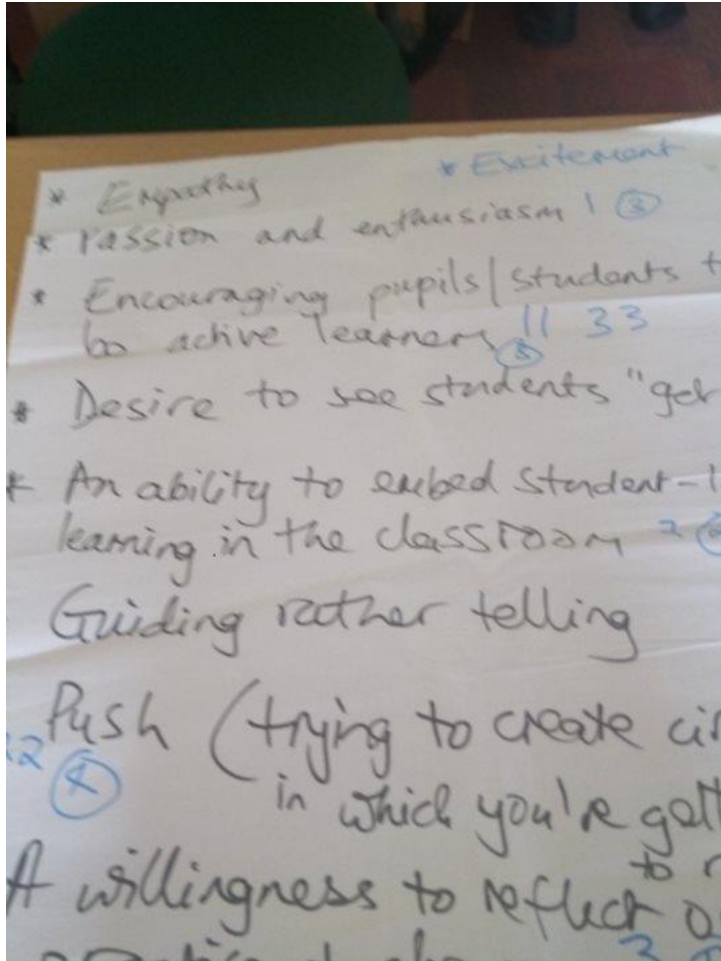 * Empathy * Excitement
* Passion and enthusiasm 1 ③
* Encouraging pupils/students t
be active learners 11 33
* Desire to see students "get
* An ability to embed student-l
learning in the classroom 2
Guiding rather telling
Push (trying to create cir
22 ④ in which you're gett
to r
A willingness to reflect o
3